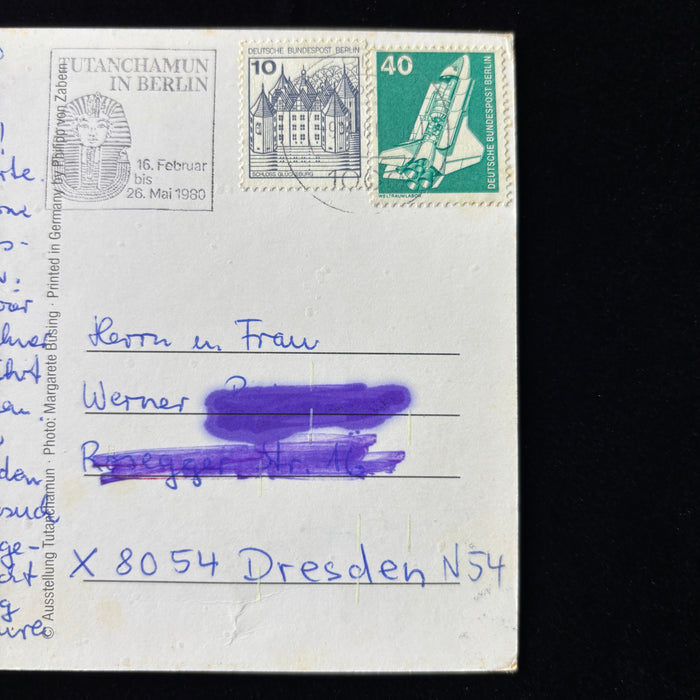 TUTANCHAMUN
IN BERLIN
16. Februar
bis
26. Mai 1980
DEUTSCHE BUNDESPOST BERLIN
10
SCHLOSS GLÜCKSBURG
40
DEUTSCHE BUNDESPOST BERLIN
WELTRAUMLABOR
© Ausstellung Tutanchamun · Photo: Margarete Büsing · Printed in Germany by Philipp von Zabern
Herrn u. Frau
Werner
Rosegger Str. 16
X 8054 Dresden N54